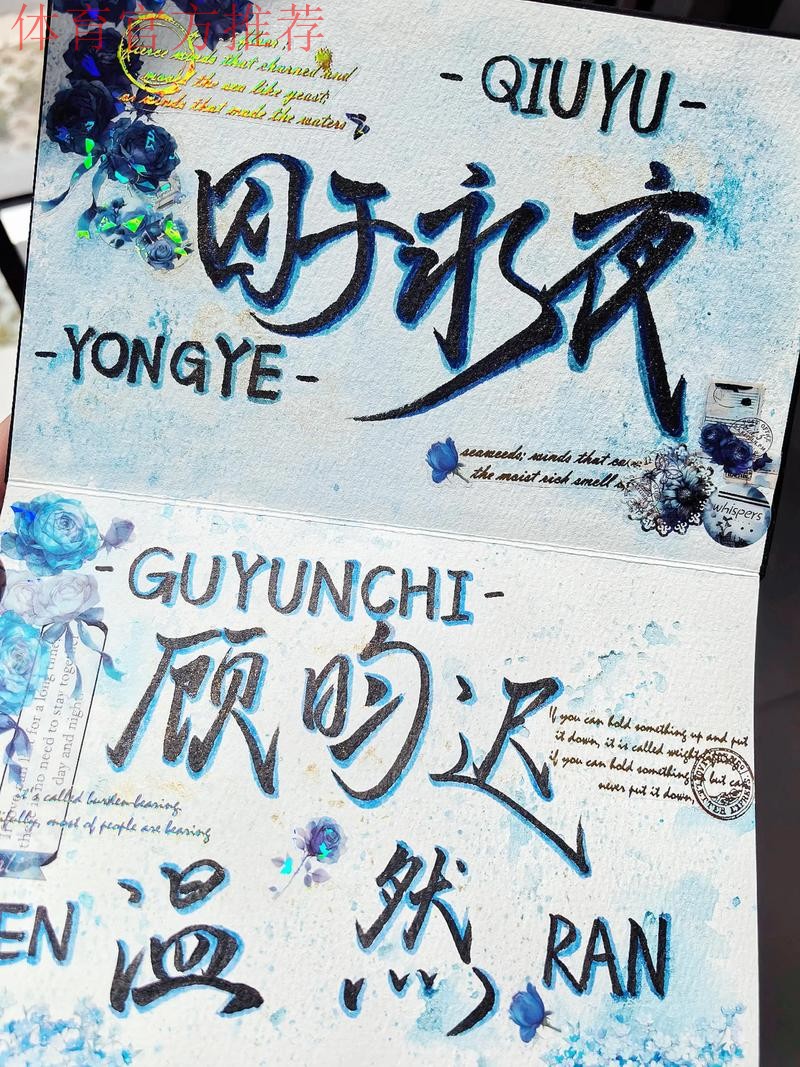 体育官方推荐
fierce winds that churned and
the sea like yeast;
winds that made the waters
- QIUYU -
囚于永夜
- YONGYE -
seaweeds; winds that
the moist rich smell
whispers
- GUYUNCHI -
顾昀迟
for a long time
who need to stay together
day and night
If you can hold something up and put
it down, it is called weight
if you can hold something but can
never put it down,
is called burden-bearing.
most of people are bearing
EN
温然
RAN